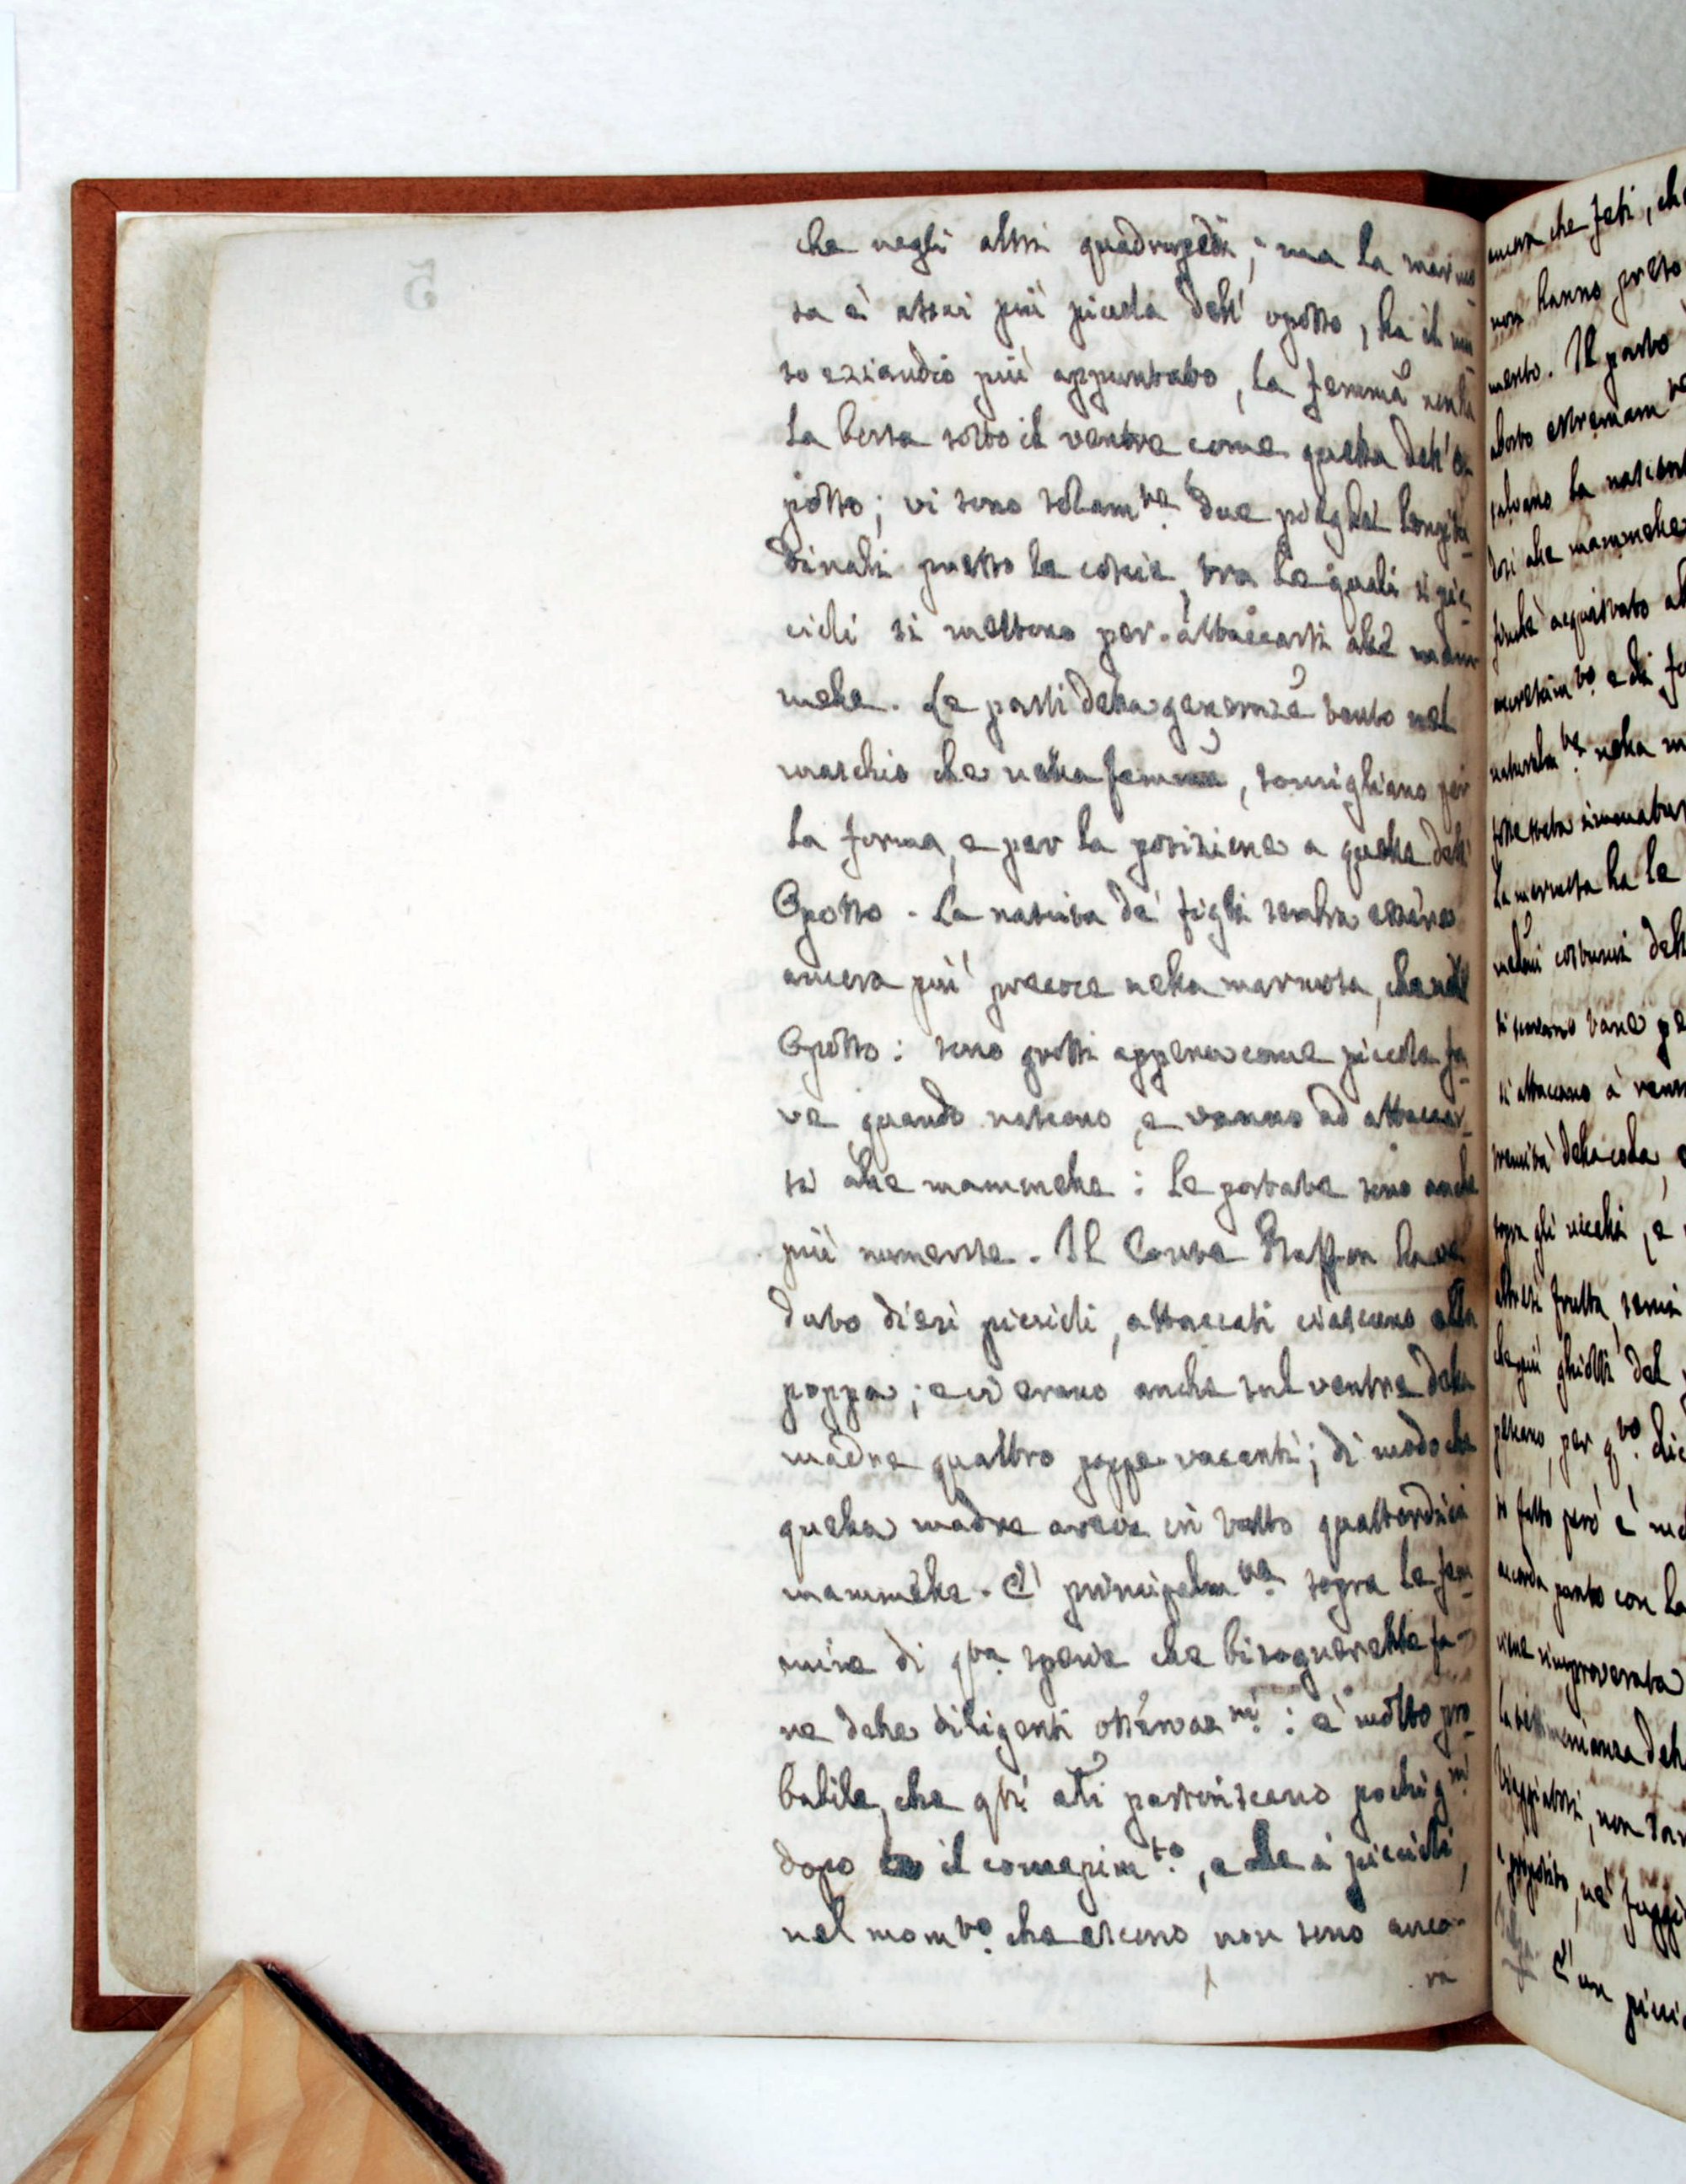 che negli altri quadrupedi; ma la marmo
sa è assai più piccola dell'oposso, ha il mu
so eziandio più appuntato, la femmã non ha
la borsa sotto il ventre come quella dell'O
posso; vi sono solam.te due pieghe longitu
dinali presso le coscie, tra le quali i pic
cioli si mettono per attaccarsi alle mam
melle. Le parti della generaziẽ tanto nel
maschio che nella femmã, somigliano per
la forma, e per la posizione a quelle dell'
Oposso. La nascita de' figli sembra essere
ancora più precoce nella marmosa, che nell'
Oposso: sono grossi appena come piccole fa
ve quando nascono, e vanno ad attaccar
si alle mammelle: le portate sono anche
più numerose. Il Conte Buffon ha ve
duto dieci piccioli, attaccati ciascuno alla
poppa; e vi erano anche sul ventre della
madre quattro poppe vacanti; di modo che
quella madre aveva in tutto quattordici
mammelle. È principalm.te sopra le fem
mine di q.ta specie che bisognerebbe fa
re delle diligenti osservaz.ni: è molto pro
babile, che q.sti ãli partoriscano pochi g.ni
dopo il concepim.to, e che i piccioli,
nel mom.to che escono non sono anco
ra
5
ancora che feti, ch
non hanno preso
mento. Il parto
aborto estremam
salvano la nascent
alle mammelle
finchè acquistato
la marmosa ha le
si attaccano a
tremità della coda,
sopra gli uccelli, e
frutta, semi
ghiotti del
pescano, per q.to dic
di fatto però è
accorda punto con la
rimproverata
viaggiatori, non
proposito, nè
È un picci